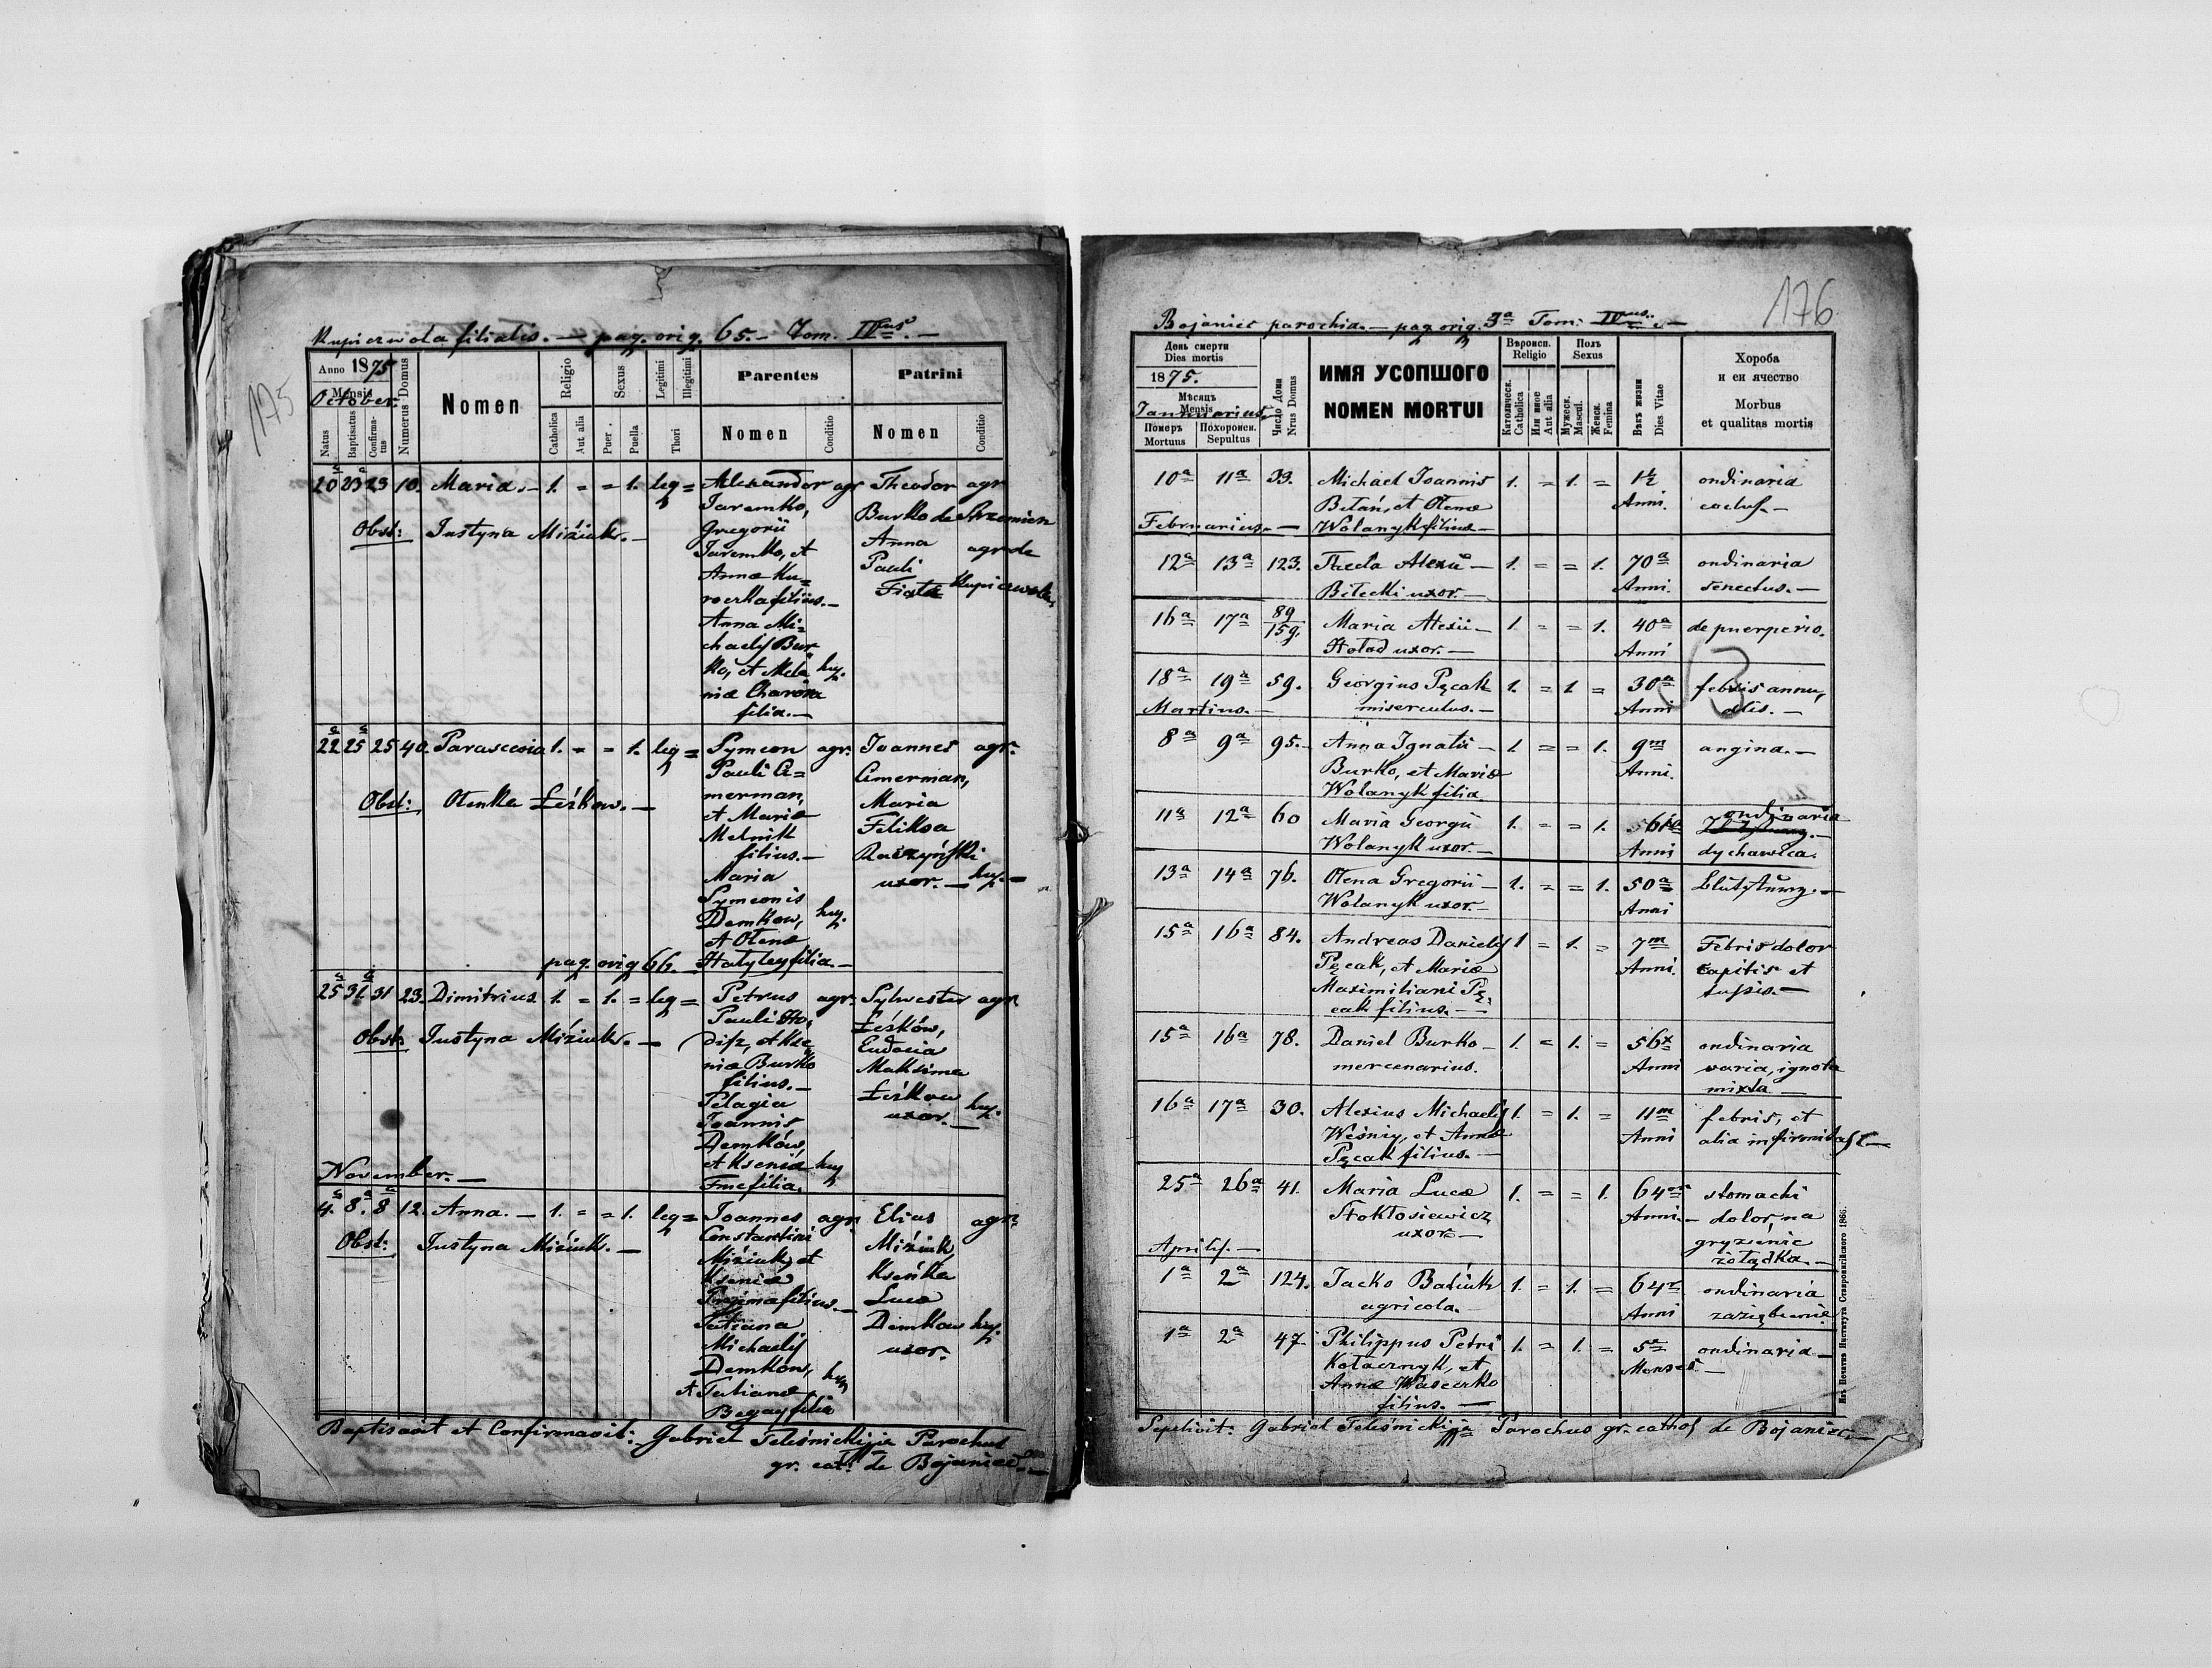 175
Kupiczwola filialis. — pag. orig. 65. — Tom. IVus. —
Anno 1875
Mensis
October.
Natus
Baptisatus
Confirmatus
Numerus Domus
Nomen
Religio
Catholica
Aut alia
Sexus
Puer.
Puella
Legitimi
Illegitimi
Thori
Parentes
Nomen
Conditio
Patrini
Nomen
Conditio
20 23 23 10. Maria. — 1. = = 1. leg = Alexander agr Theodor agr
Jaremko, Burko de Strzemien
Obst: Justyna Miziuk. — Gregorii Anna agr de
Jaremko, et Pauli
Annæ Ku= Fiata Kupiczwola,
rocska filius. —
Anna Mi=
chaelis Bur=
ko, et Mela= huj.
niæ Charona
filia. —
22 25 25 40. Parascevia 1. = = 1. leg = Symeon agr. Joannes agr.
Pauli Ci= Cimerman,
merman, Maria
Obst: Olenka Leśkow. — et Mariæ Feliksa
Melnik Raczyński
filius. — uxor. — huj. —
Maria
Symeonis
Demkow, huj.
et Olenæ
pag. orig 66. Hatyley filia. —
25 31 31 23. Dimitrius 1. = 1. = leg = Petrus agr. Sylwester agr.
Pauli Leśków,
Obst: Justyna Miziuk. — Eudocia
niæ Burko Maksima
filius. — Leśkow
Pelagia uxor. — huj.
Joannis
Demków,
et Ksenia huj
November. — filia.
4. 8. 8 12. Anna. — 1. = = 1. leg = Joannes agr. Elias agr.
Obst: Justyna Miziuk. — Constantini Miziuk,
Miziuk, et Kseńka
Kseniæ Lucæ
filius. — Demkow huj.
Tatiana uxor.
Michaelis
Demkow, huj
et Tatianæ
Begay filia
Baptisavit et Confirmavit: Gabriel Teleśnicki Parochus
gr. cat. de Bojaniec. —
176
Bojaniec parochia. — pag orig. 3a Tom: IVus. —
День смерти
Dies mortis
1875.
Мѣсяцъ
Mensis
Januarius.
Померъ
Mortuus
Похоронен.
Sepultus
Число Дома
Nrus Domus
ИМЯ УСОПШОГО
NOMEN MORTUI
Вѣроисп.
Religio
Католическ.
Catholica
Или иное
Aut alia
Полъ
Sexus
Мужеск.
Mascul.
Женск.
Femina
Вѣкъ жизни
Dies Vitae
Хороба
и еи ячество
Morbus
et qualitas mortis
10a 11a 33. Michael Joannis 1. = 1. = 1½ ordinaria
Bełań, et Olenæ Anni.
Februarius. — Wolanyk filius —
12a 13a 123. Thecla Alexii — 1. = = 1. 70a ordinaria
Bełecki uxor. — Anni. senectus. —
16a 17a 89/159. Maria Alexii — 1. = = 1. 40a de puerperio.
Hołod uxor. — Anni
18a 19a 59. Georgius Pęcak 1. = 1 = 30a febris annu,
Martius. — Anni alis. —
8a 9a 95. — Anna Ignatii — 1. = = 1. 9m angina. —
Burko, et Mariæ Anni.
Wolanyk filia.
11a 12a 60 Maria Georgii 1. = = 1. 56 ordinaria
Wolanyk uxor. — Anni dychawica.
13a 14a 76. Olena Gregorii — 1. = = 1. 50a Blutsturz. —
Wolanyk uxor. — Anni
15a 16a 84. Andreas Danielis 1 = 1. = 7m Febris dolor
Pęcak, et Mariæ Anni. capitis et
Maximiliani Pę, tussis. —
cak filius. —
15a 16a 78. Daniel Burko — 1. = 1. = 56 ordinaria
mercenarius. Anni varia, ignota
mixta —
16a 17a 30. Alexius Michaelis 1. = 1. = 11m febris, et
Weśniy, et Annæ Anni alia infirmitas —
Pęcak filius. —
25a 26a 41. Maria Lucæ 1. = = 1. 64 stomachi
Stokłosiewicz Anni. — dolor, na
uxor — gryzienie
Aprilis. — żołądka. —
1a 2a 124. Jacko Batiuk 1. = 1. = 64 ordinaria
agricola. — Anni zaziębienie
1a 2a 47 Philippus Petri 1. = 1. = 5a ordinaria —
Kołacznyk, et Menses. —
Annæ Wasecrko
filius. —
Sepelivit: Gabriel Teleśnicki Parochus gr. cathol de Bojaniec. —
Изъ Печатни Института Ставропигійского 1866.